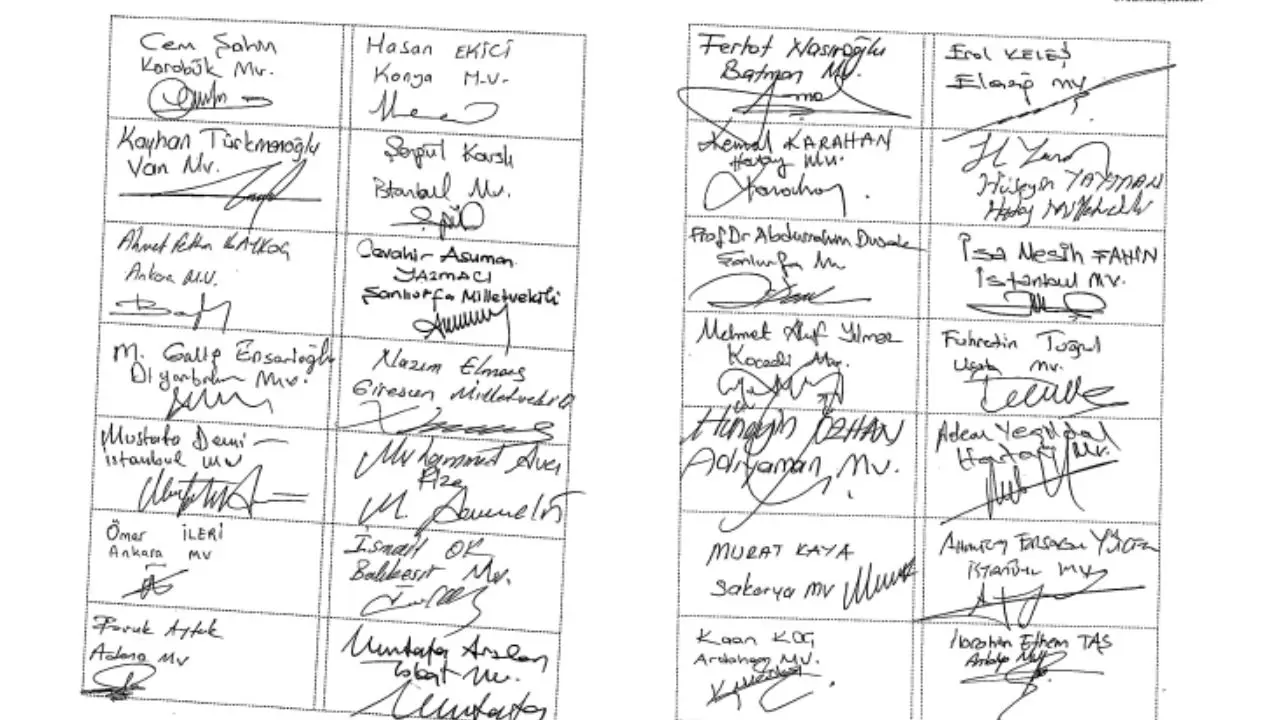 Cem Şahin
Karabük Mv.
Hasan EKİCİ
Konya M.V.
Kayhan Türkmenoğlu
Van Mv.
Şengül Karslı
İstanbul Mv.
Ahmet Fethan BAYKOÇ
Ankara M.V.
Cevahir Asuman
YAZMACI
Şanlıurfa Milletvekili
M. Galip Ensarioğlu
Diyarbakır Mv.
Nazım Elmas
Giresun Milletvekili
Mustafa Demir
İstanbul mv
Muhammed Avcı
Rize
Ömer İLERİ
Ankara mv
İsmail OK
Balıkesir Mv.
Faruk Aytek
Adana Mv
Mustafa Arslan
Tokat Mv.
Ferhat Nasıroğlu
Batman Mv.
Erol KELEŞ
Elazığ mv
Kemal KARAHAN
Hatay Mv.
Hüseyin YAYMAN
Hatay Milletvekili
Prof Dr Abdurrahim Dusak
Şanlıurfa Mv
İsa Mesih ŞAHİN
İstanbul Mv.
Mehmet Akif Yılmaz
Kocaeli Mv.
Fahrettin Tuğrul
Uşak Mv.
Hüseyin ÖZHAN
Adıyaman Mv.
Adem Yeşildal
Hatay Mv.
MURAT KAYA
Sakarya mv
İstanbul mv
Kaan KOÇ
Ardahan Mv.
İbrahim Ethem TAŞ
Antalya Mv